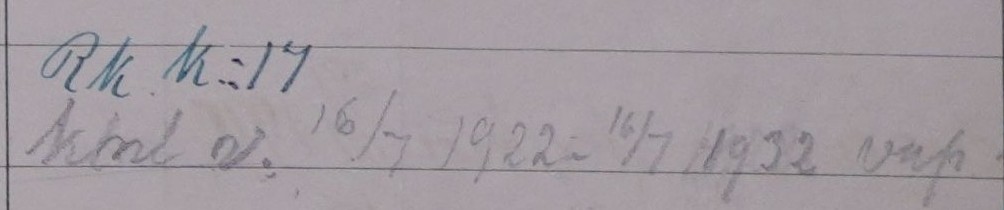 Rk k:17
kml v. 16/7 1922- 16/7 1932 vap.